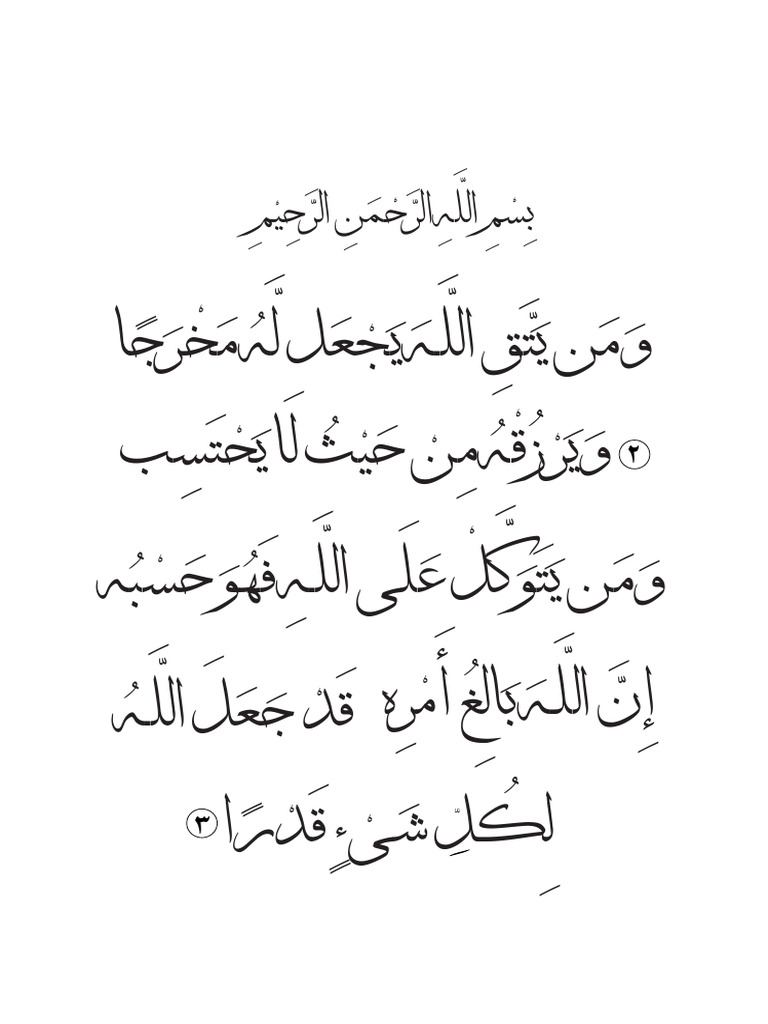 بِسْمِ اللَّهِ الرَّحْمَنِ الرَّحِيْمِ
وَمَن يَتَّقِ اللَّهَ يَجْعَل لَّهُ مَخْرَجًا
٢ وَيَرْزُقْهُ مِنْ حَيْثُ لَا يَحْتَسِب
وَمَن يَتَوَكَّلْ عَلَى اللَّهِ فَهُوَ حَسْبُه
إِنَّ اللَّهَ بَالِغُ أَمْرِه قَدْ جَعَلَ اللَّهُ
لِكُلِّ شَىْءٍ قَدْرًا ٣